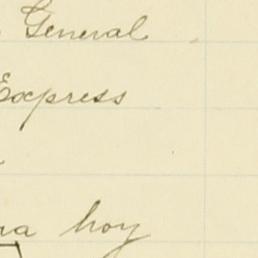 General
Express
na hoy